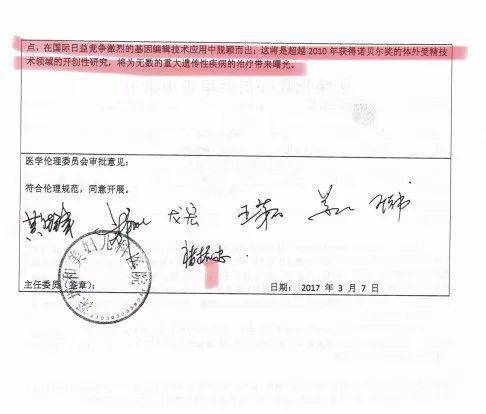 点,在国际日益竞争激烈的基因编辑技术应用中脱颖而出;这将是超越 2010 年获得诺贝尔奖的体外受精技
术领域的开创性研究,将为无数的重大遗传性疾病的治疗带来曙光。
医学伦理委员会审批意见:
符合伦理规范,同意开展。
主任委员(签章):
日期: 2017 年 3 月 7 日
深圳和美妇儿科医院